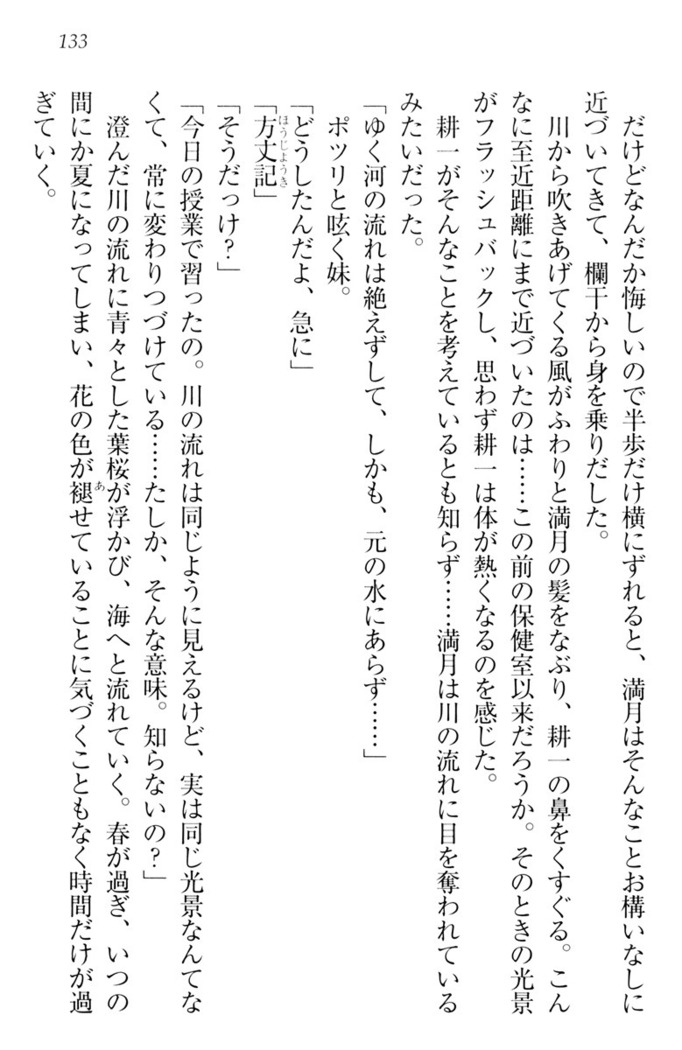 133
だけどなんだか悔しいので半歩だけ横にずれると、満月はそんなことお構いなしに
近づいてきて、欄干から身を乗りだした。
川から吹きあげてくる風がふわりと満月の髪をなぶり、耕一の鼻をくすぐる。こん
なに至近距離にまで近づいたのは……この前の保健室以来だろうか。そのときの光景
がフラッシュバックし、思わず耕一は体が熱くなるのを感じた。
耕一がそんなことを考えているとも知らず……満月は川の流れに目を奪われている
みたいだった。
「ゆく河の流れは絶えずして、しかも、元の水にあらず……」
ポツリと呟く妹。
「どうしたんだよ、急に」
「方丈記」
ほうじようき
「そうだっけ？」
「今日の授業で習ったの。川の流れは同じように見えるけど、実は同じ光景なんてな
くて、常に変わりつづけている……たしか、そんな意味。知らないの？」
澄んだ川の流れに青々とした葉桜が浮かび、海へと流れていく。春が過ぎ、いつの
間にか夏になってしまい、花の色が褪せていることに気づくこともなく時間だけが過
あ
ぎていく。